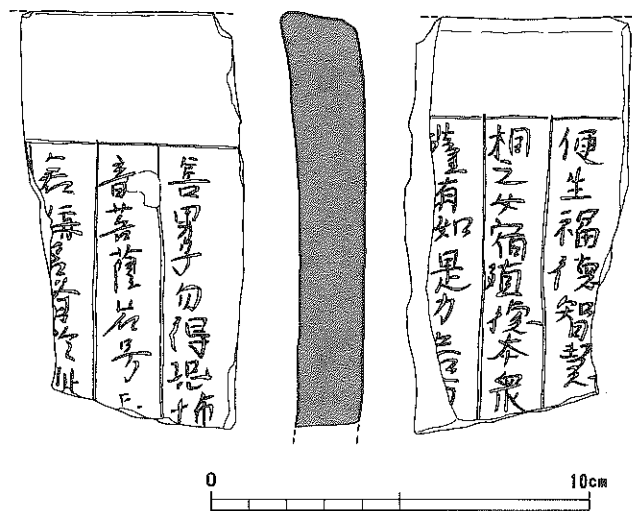 善男子勿得恐怖
音菩薩名号是
若稱名者於此
便生福德智慧
相之女宿殖德本衆
薩有如是力若有
0
10cm